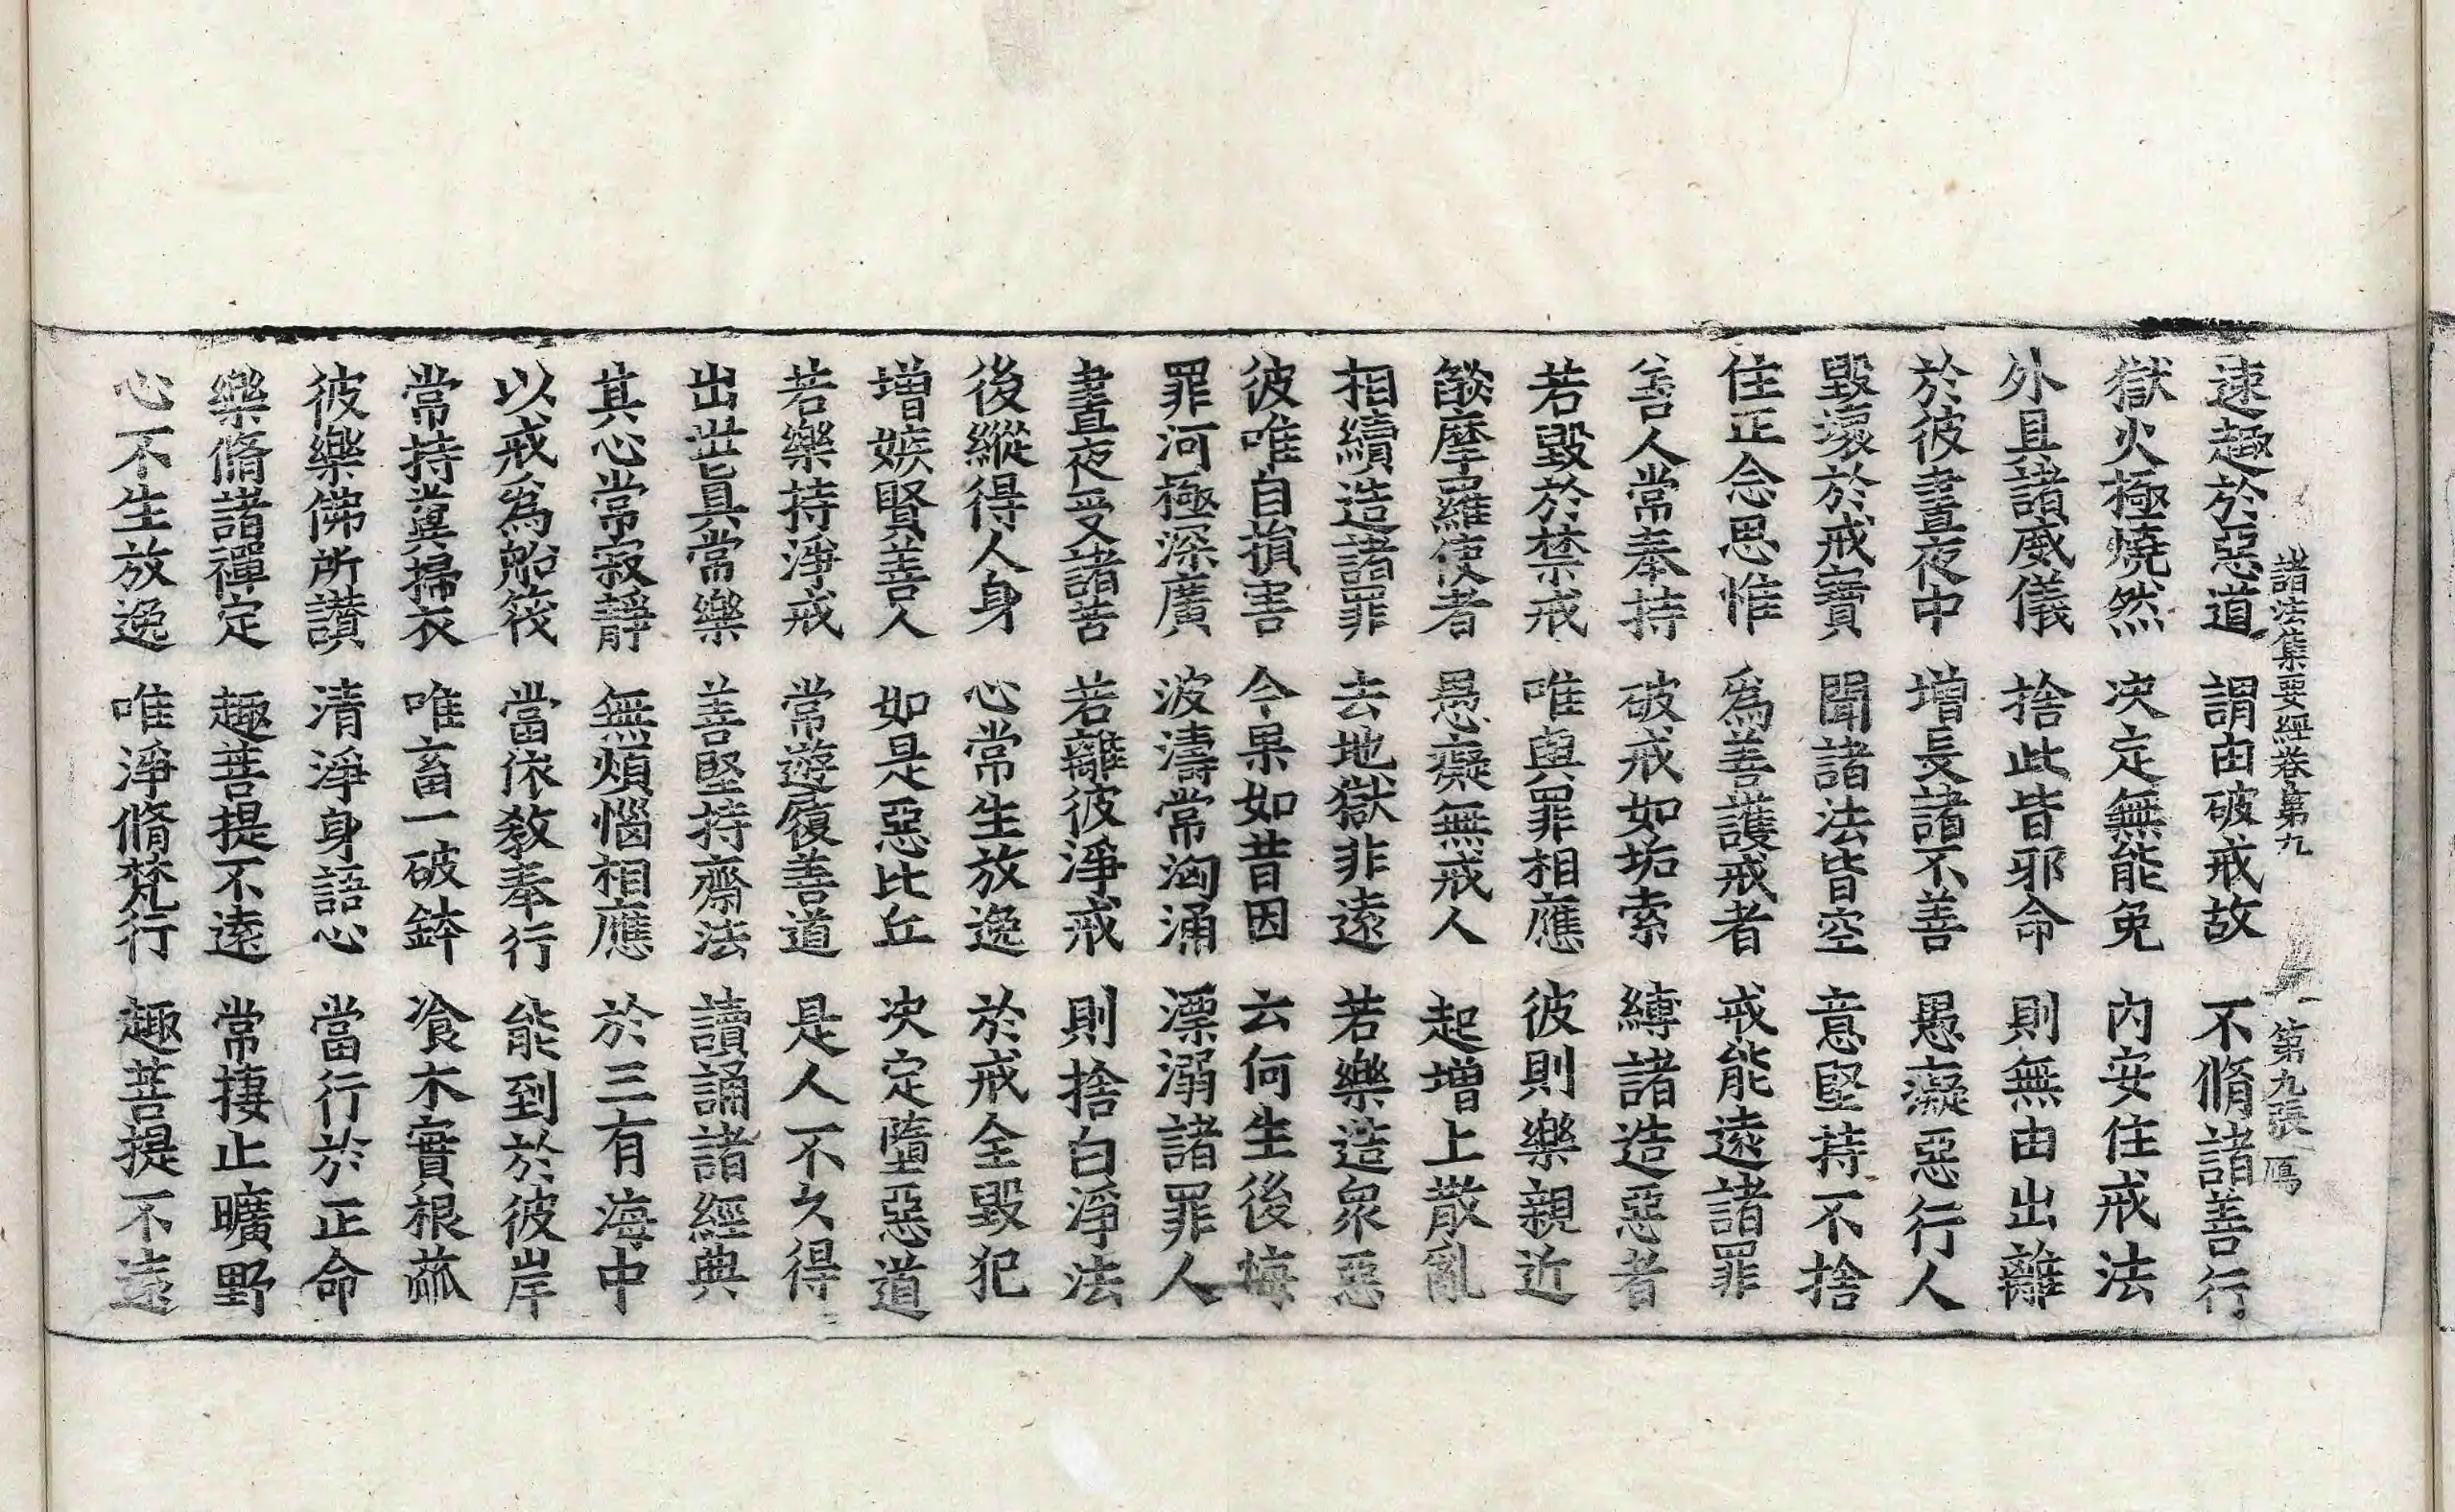 諸法集要經卷第九 第九張 鴈
速趣於惡道 謂由破戒故 不脩諸善行
獄火極燒然 决定無能免 內安住戒法
外具諸威儀 捨此皆邪命 則無由出離
於彼晝夜中 增長諸不善 愚癡惡行人
毀壞於戒寶 聞諸法皆空 意堅持不捨
住正念思惟 爲善護戒者 戒能遠諸罪
善人常奉持 破戒如垢索 縛諸造惡者
若毀於禁戒 唯與罪相應 彼則樂親近
餤摩羅使者 愚癡無戒人 起增上散亂
相續造諸罪 去地獄非遠 若樂造衆惡
彼唯自損害 今果如昔因 云何生後悔
罪河極深廣 波濤常洶涌 漂溺諸罪人
晝夜受諸苦 若離彼淨戒 則捨白淨法
後縱得人身 心常生放逸 於戒全毀犯
增嫉賢善人 如是惡比丘 决定墮惡道
若樂持淨戒 常遊履善道 是人不久得
出世真常樂 善堅持齋法 讀誦諸經典
其心常寂靜 無煩惱相應 於三有海中
以戒爲船筏 當依教奉行 能到於彼岸
常持糞掃衣 唯畜一破鉢 飡木實根蓏
彼樂佛所讃 清淨身語心 當行於正命
樂脩諸禪定 趣菩提不遠 常捿止曠野
心不生放逸 唯淨脩梵行 趣菩提不遠